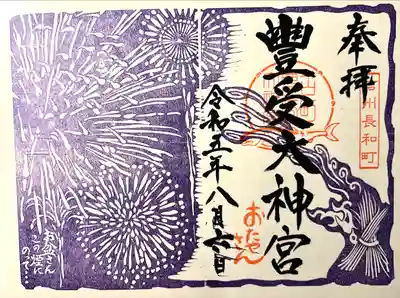 奉拝
信州長和町
豐受大神宮
おたや
さん
令和五年八月六日
お盆さん
この煙に
のって…